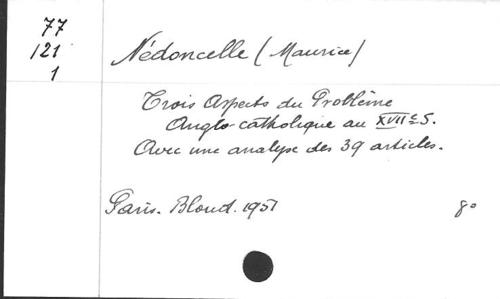 77
121
1
Nédoncelle (Maurice)
Trois Aspects du Problème
Anglo-catholique au XVIIe S.
Avec une analyse des 39 articles.
Paris. Bloud. 1951
8o